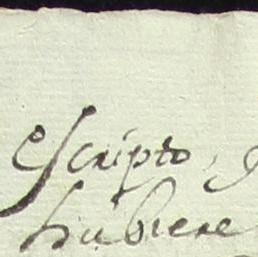 escripto,
hubiere